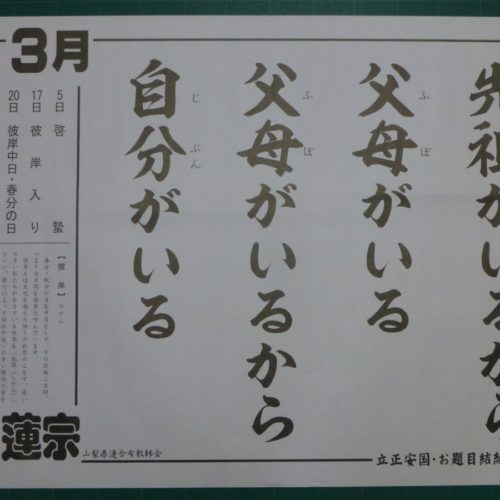 先祖がいるから
父母がいる
父母がいるから
自分がいる
ふぼ
ふぼ
じぶん
3月
5日 啓蟄
17日 彼岸入り
20日 彼岸中日・春分の日
【彼岸】ひがん
蓮宗
山梨県連合布教師会
立正安国・お題目結